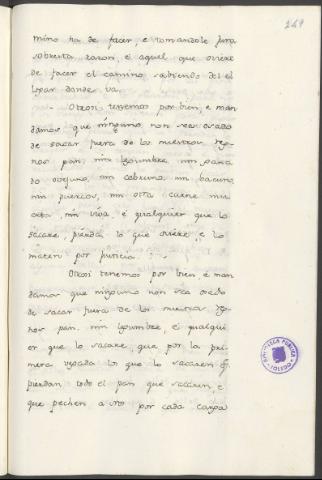 249
mino ha de facer, e tomandole jura
sobresta razon, e aquel que oviere
de facer el camino sabiendo del el
lugar donde va.
Otrosi tenemos por bien, e man
damos que ninguno non sea osado
de sacar fuera de los nuestros Reg
nos pan, nin legumbre, nin gana
do ovejuno, nin cabruno, nin bacuno,
nin puercos, nin otra carne mu
erta, nin viva, e qualquier que lo
sacare, pierda lo que oviere, e lo
maten por justicia.
Otrosi tenemos por bien, e man
damos que ninguno non sea osado
de sacar fuera de los nuestros Reg
nos pan, nin legumbre, e qualqui
er que lo sacare, que por la pri
mera vegada lo que lo sacaren
pierdan todo el pan que sacaren, e
que pechen a nos por cada carga
BIBLIOTECA PUBLICA
TOLEDO